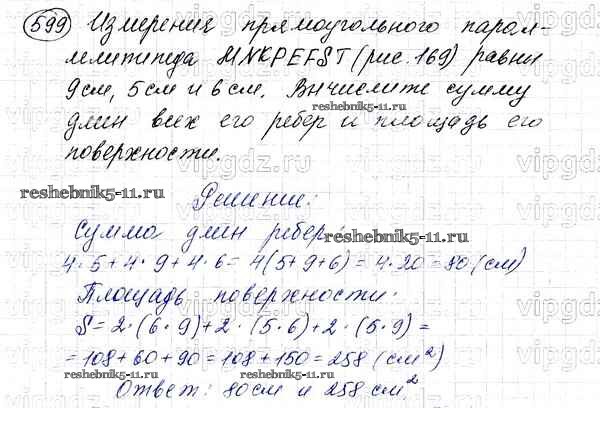 599 Измерения прямоугольного парал-
лелепипеда MNKPEFST (рис. 169) равны
9 см, 5 см и 6 см. Вычислите сумму
reshebnik5-11.ru
длин всех его ребер и площадь его
поверхности.
reshebnik5-11.ru
Решение:
Сумма длин ребер:
reshebnik5-11.ru
4·5+4·9+4·6=4(5+9+6)=4·20=80 (см)
Площадь поверхности:
S=2·(6·9)+2·(5·6)+2·(5·9)=
=108+60+90=108+150=258 (см²)
reshebnik5-11.ru
Ответ: 80 см и 258 см²
vipgdz.ru